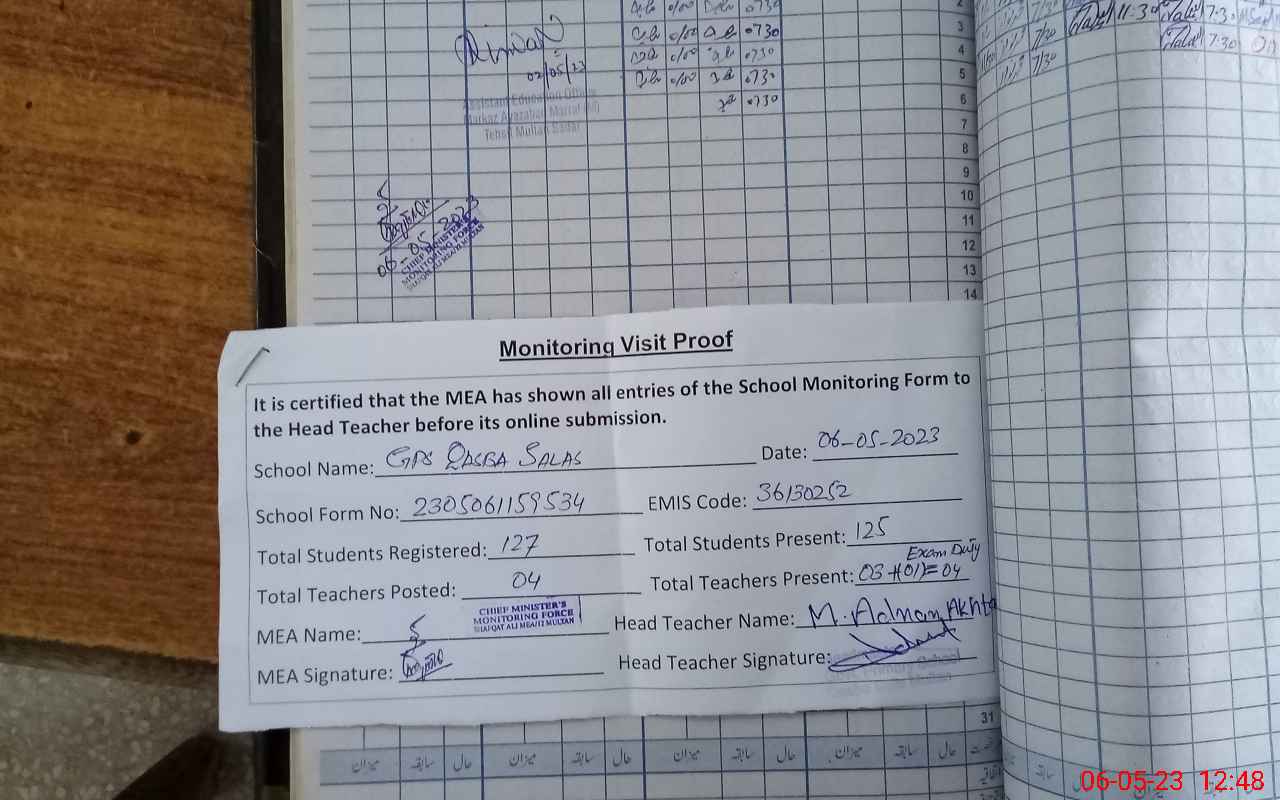 02/05/23
Assistant Education Officer
Tehsil Multan Sadar
0730
0730
0730
0730
0730
2
3
4
5
6
7
8
9
10
11
12
13
14
7/30
7/30
11:30
7:30
7:30
06-05-2023
CHIEF MINISTER'S
MONITORING FORCE
SHAFQAT ALI MEA/12 MULTAN
Monitoring Visit Proof
It is certified that the MEA has shown all entries of the School Monitoring Form to
the Head Teacher before its online submission.
School Name: GPS QASBA SALAS Date: 06-05-2023
School Form No: 2305061159534 EMIS Code: 36130252
Total Students Registered: 127 Total Students Present: 125
Exam Duty
Total Teachers Posted: 04 Total Teachers Present: 03+(01)=04
CHIEF MINISTER'S
MONITORING FORCE
SHAFQAT ALI MEA/12 MULTAN
MEA Name: Head Teacher Name: M. Adnan Akhta
MEA Signature: Head Teacher Signature:
31
میزان سابقہ حال میزان سابقہ حال میزان سابقہ حال میزان سابقہ حال
06-05-23 12:48